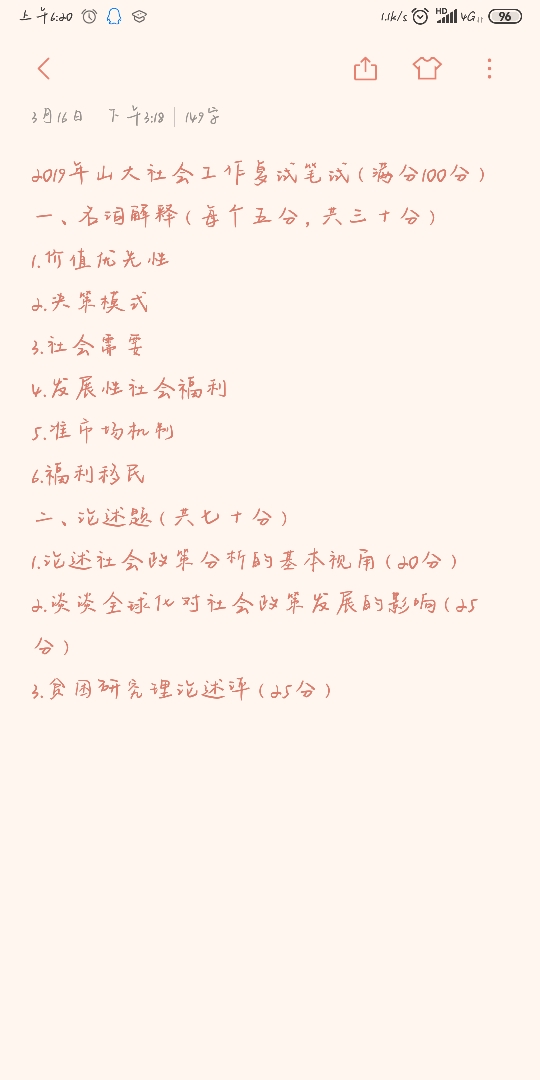 上午6:20 1.1k/s HD 4G 96
3月16日 下午3:18 | 149字
2019年山大社会工作复试笔试(满分100分)
一、名词解释(每个五分,共三十分)
1.价值优先性
2.决策模式
3.社会需要
4.发展性社会福利
5.准市场机制
6.福利移民
二、论述题(共七十分)
1.论述社会政策分析的基本视角(20分)
2.谈谈全球化对社会政策发展的影响(25
分)
3.贫困研究理论述评(25分)